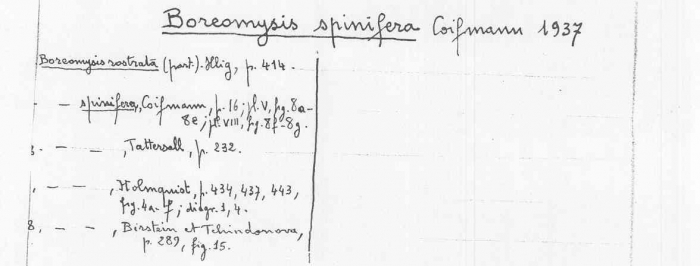 Boreomysis spinifera Coifmann 1937
Boreomysis rostrata (part.). Illig, p. 414.
- - spinifera, Coifmann, p. 16; pl. V, fig. 8a-
8e; pl. VIII, fig. 8f-8g.
- - , Tattersall, p. 232.
- - , Holmquist, p. 434, 437, 443,
fig. 4a-f; diagr. 1, 4.
8, - - , Birstein et Tchindonova,
p. 289, fig. 15.